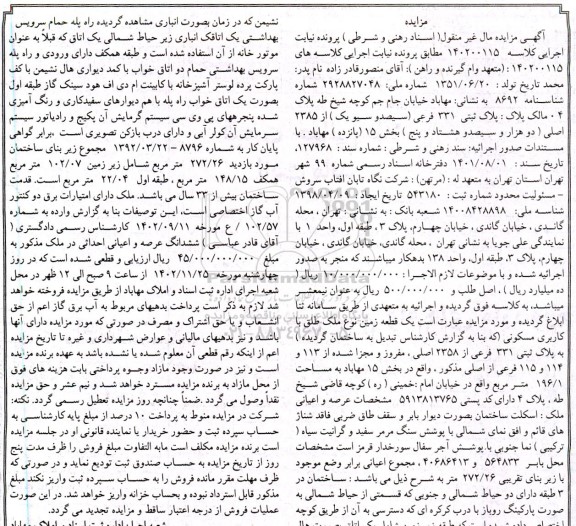 مزایده
آگهی مزایده مال غیر منقول( اسناد رهنی و شرطی ) پرونده نیابت
اجرایی کلاسه ۱۴۰۲۰۰۱۱۵ مطابق پرونده نیابت اجرایی کلاسه های
۱۴۰۲۰۰۱۱۵ : (متعهد وام گیرنده و راهن ): آقای منصور قادر زاده نام پدر:
محمد تاریخ تولد : ۱۳۵۱/۰۶/۲۰ شماره ملی: ۲۹۲۸۸۲۷۰۴۸ شماره
شناسنامه ۸۶۹۲ به نشانی: مهاباد خیابان جام جم کوچه شیخ طه پلاک
۰۴ مالک پلاک : پلاک ثبتی ۳۳۱ فرعی (سیصدو سیو یک ) از ۲۳۸۵
اصلی ( دو هزار و سیصدو هشتاد و پنج ) بخش ۱۵ (پانزده ) مهاباد . با
مستندات صدور اجرائیه: سند رهنی و شرطی : شماره سند : ۱۲۷۹۶۸،
تاریخ سند : ۱۴۰۱/۰۸/۰۱ دفترخانه اسناد رسمی شماره ۹۹ شهر
تهران استان تهران به متعهد له : (مرتهن) : شرکت نگاه تابان آفتاب سروش
- مسئولیت محدود شماره ثبت : ۵۴۳۱۸۰ تاریخ ایجاد : ۱۳۹۸/۰۴/۰۹
شناسه ملی: ۱۴۰۰۸۴۲۸۸۹۸ شعبه بانک : به نشانی : تهران ، محله
گاندی ، خیابان گاندی ، خیابان چهارم، پلاک ۳، طبقه اول، واحد ۱ با
نمایندگی علی جویا به نشانی تهران ، محله گاندی، خیابان گاندی ، خیابان
چهارم، پلاک ۳، طبقه اول، واحد ۱۳۸ بدهکار میباشند که منجر به صدور
اجرائیه شده و با موضوعات لازم الاجرا : ۱۰/۰۰۰/۰۰۰/۰۰۰ ریال (
ده میلیارد ریال ) ، اصل طلب و ۵۰۰/۰۰۰/۰۰۰ ریال به عنوان نیمعشر
میباشد، به کلاسه فوق گردیده و اجرائیه به متعهدی از طریق سامانه ثنا
ابلاغ گردیده و مورد مزایده عبارت است یک قطعه زمین نوع ملک طلق با
کاربری مسکونی (که بنا به گزارش کارشناس تبدیل به ساختمان گردیده )
به پلاک ثبتی ۳۳۱ فرعی از ۲۳۵۸ اصلی ، مفروز و مجزا شده از ۱۱۳ و
۱۱۴ و ۱۱۵ فرعی از اصلی مذکور ، واقع در بخش ۱۵ مهاباد به مساحت
۱۹۶/۱ متر مربع واقع در خیابان امام :خمینی ( ره ) کوچه قاضی شیخ
طه ، پلاک ۴ دارای کد پستی ۵۹۱۳۸۱۳۷۶۵ مشخصات عرصه و اعیانی
ملک : اسکلت ساختمان بصورت دیوار بابر و سقف طاق ضربی فاقد شناژ
های قائم و افق نمای شمالی با پوشش سنگ مرمر سفید و گرانیت سیاه (
ترکیبی ) نما جنوبی با پوشش آجر سفال سوراخدار قرمز است مشخصات
محل بابـر ۵۶۴۸۳۳ و ۴۰۶۸۶۴۱۳ ، مجموع اعیانی برابر وضع موجود
با زیر بنای تقریبی ۲۷۲/۲۶ متر به شرح ذیل می باشد : ساختمان در
۳ طبقه دارای دو حیاط شمالی و جنوبی که قسمتی از حیاط شمالی به
صورت پارکینگ روباز با درب کرکره ای که دسترسی به آن از طریق کوچه
نشیمن که در زمان بصورت انباری مشاهده گردیده راه پله حمام سرویس
بهداشتی یک اتاقک انباری زیر حیاط شمالی یک اتاق که قبلاً به عنوان
موتور خانه از آن استفاده شده است و طبقه همکف دارای ورودی و راه پله
سرویس بهداشتی حمام دو اتاق خواب با کمد دیواری هال نشیمن با کف
پارکت پرده لوستر آشپزخانه با کابینت ام دی اف هود سینک گاز طبقه اول
بصورت یک اتاق خواب راه پله با هم دیوارهای سفیدکاری و رنگ آمیزی
شده پنجرههای پی وی سی سیستم گرمایش آن پکیج و رادیاتور سیستم
سرمایش آن کولر آبی و دارای درب بازکن تصویری است ،برابر گواهی
پایان کار به شماره ۸۷۹۶ – ۱۳۹۲/۰۳/۲۲ مجموع زیر بنای ساختمان
مورد بازدید ۲۷۲/۲۶ متر مربع شامل زیر زمین ۱۰۲/۰۷ متر مربع
همکف ۱۴۸/۱۵ متر مربع ، طبقه اول ۲۲/۰۴ متر مربع است. قدمت
ساختمان بیش از ۳۳ سال می باشد. ملک دارای امتیازات برق دو کنتور
آب گاز اختصاصی است. این توصیفات بنا به گزارش وارده به شماره
۱۰۲/۵۷ / ع مورخه ۱۴۰۲/۰۹/۱۱ کارشناس رسمی دادگستری (
آقای قادر عباسی ) ششدانگ عرصه و اعیانی احداثی در ملک مذکور به
مبلغ ۴۵/۰۰۰/۰۰۰/۰۰۰ ریال ارزیابی و قطعی شده است که در روز
چهارشنبه مورخ ۱۴۰۲/۱۱/۲۵ از ساعت ۹ صبح الی ۱۲ ظهر در محل
شعبه اجرای اداره ثبت اسناد و املاک مهاباد از طریق مزایده فروخته خواهد
شد لازم به ذکر است پرداخت بدهیهای مربوط به آب برق گاز اعم از حق
انشعاب و یا حق اشتراک و مصرف در صورتی که مورد مزایده دارای آنها
باشد و نیز بدهیهای مالیاتی و عوارض شهرداری و غیره تا تاریخ مزایده
اعم از اینکه رقم قطعی آن معلوم شده یا نشده باشد به عهده برنده مزایده
است و نیز در صورت وجود مازاد وجوه پرداختی بابت هزینه های فوق
از محل مازاد به برنده مزایده مسترد خواهد شد و نیم عشر و حق مزایده
نقداً وصول می گردد. ضمناً چنانچه روز مزایده تعطیل رسمی گردد. نکته:
شرکت در مزایده منوط به پرداخت ۱۰ درصد از مبلغ پایه کارشناسی به
حساب سپرده ثبت و حضور خریدار یا نماینده قانونی او در جلسه مزایده
است برنده مزایده مکلف است مابه التفاوت مبلغ فروش را ظرف مدت پنج
روز از تاریخ مزایده به حساب صندوق ثبت تودیع نماید و در صورتی که
ظرف مهلت مقرر مانده فروش را به حساب سپرده ثبت واریز نکند مبلغ
مذکور قابل استرداد نبوده و بحساب خزانه واریز خواهد شد. در این صورت
عملیات فروش از درجه اعتبار ساقط و مزایده تجدید می گردد.